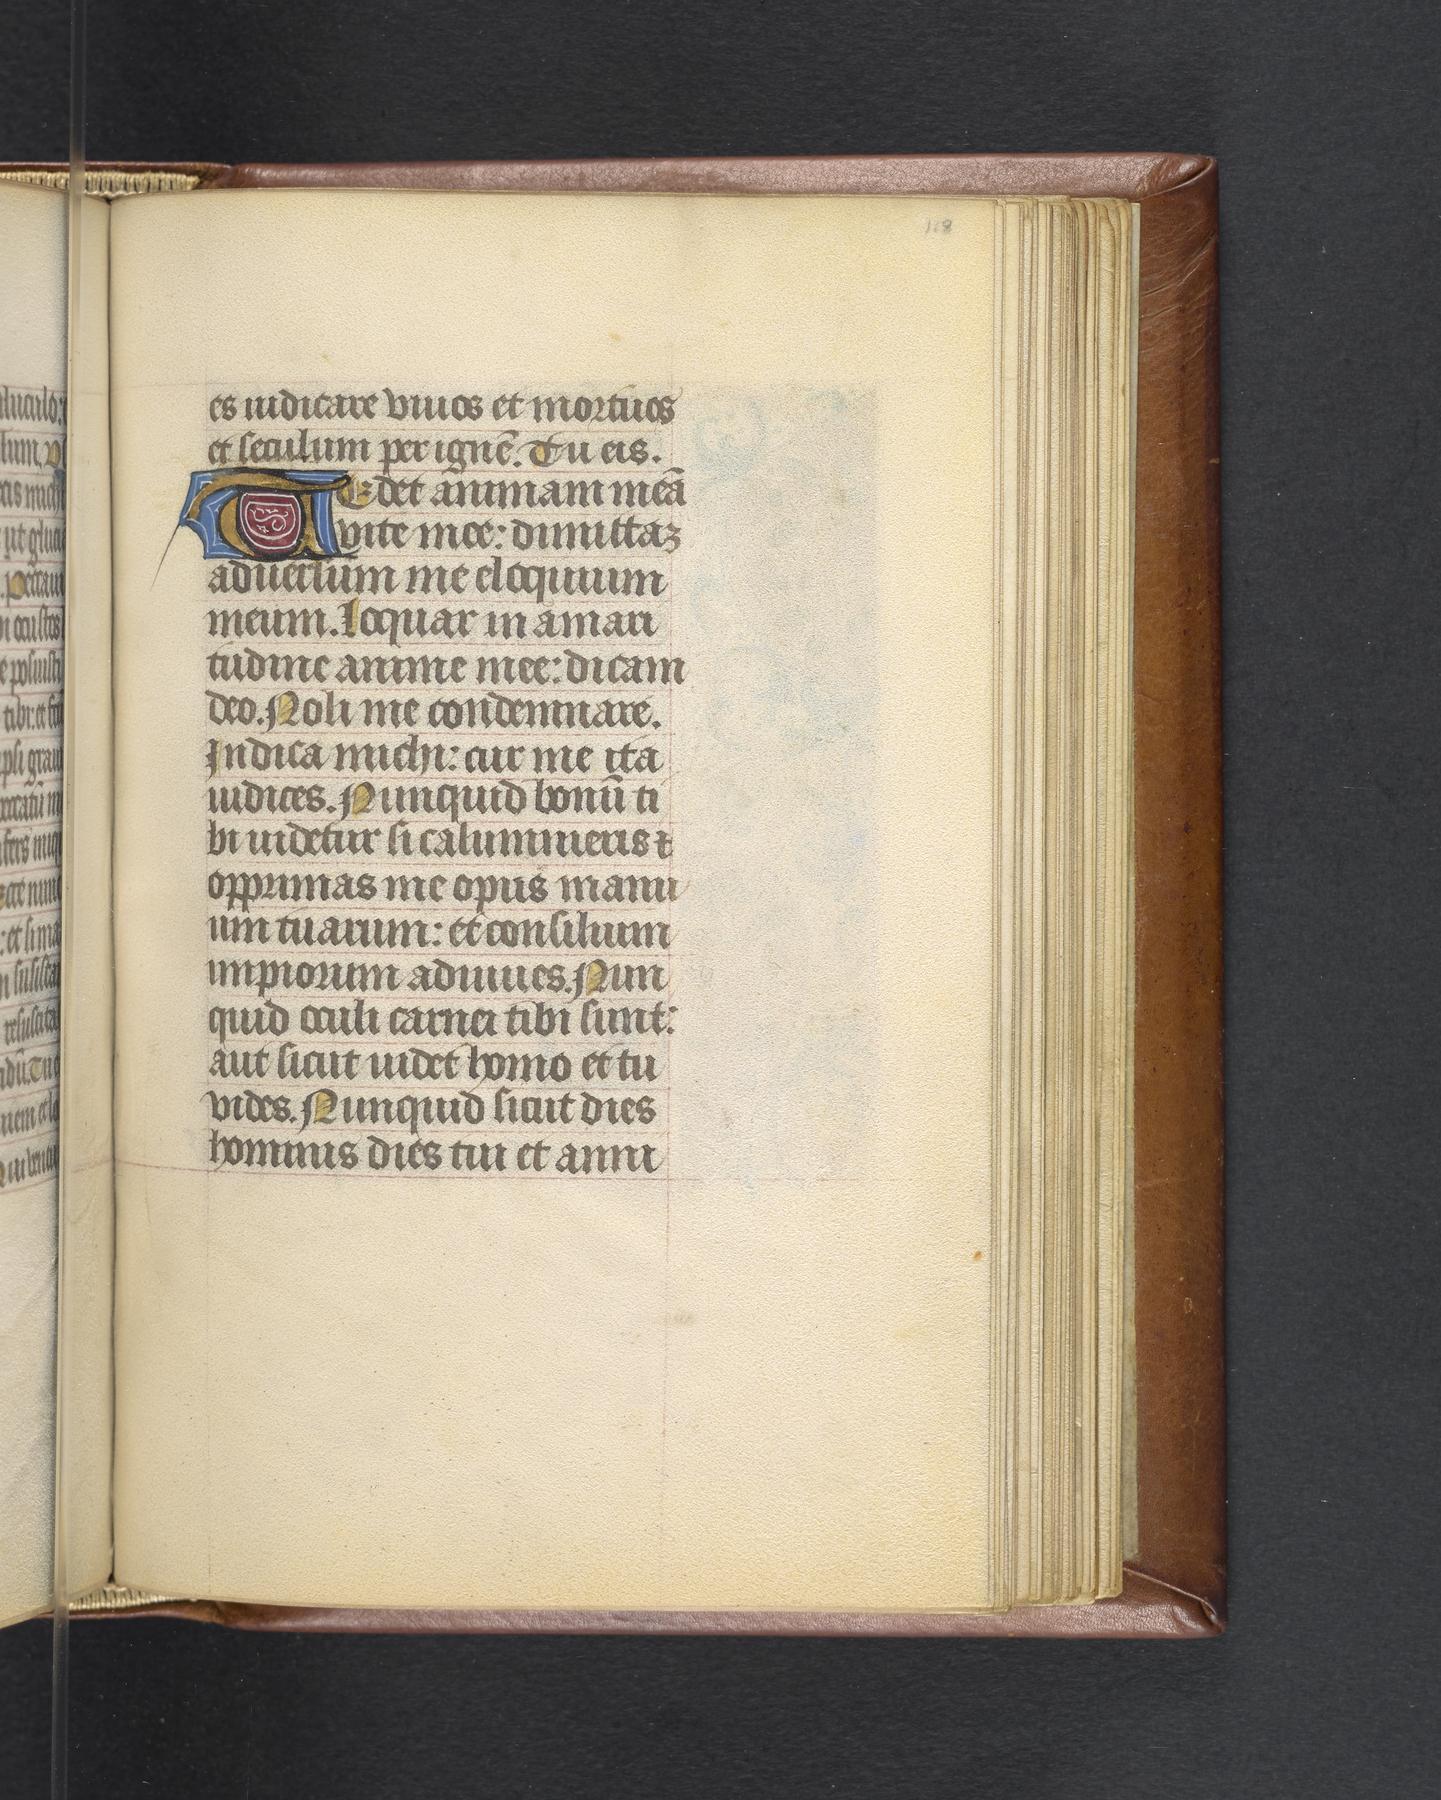 118
es iudicare viuos et mortuos
et seculum per ignē. Tu eis.
TEdet animam meā
vite mee: dimittaʒ
aduersum me eloquium
meum. Loquar in amari
tudine anime mee: dicam
deo. Noli me condemnare.
Indica michi: cur me ita
iudices. Nunquid bonū ti
bi uidetur si calumnieris ⁊
opprimas me opus manu
um tuarum: et consilium
impiorum adiuues. Nun
quid oculi carnei tibi sunt:
aut sicut uidet homo et tu
vides. Nunquid sicut dies
hominis dies tui et anni